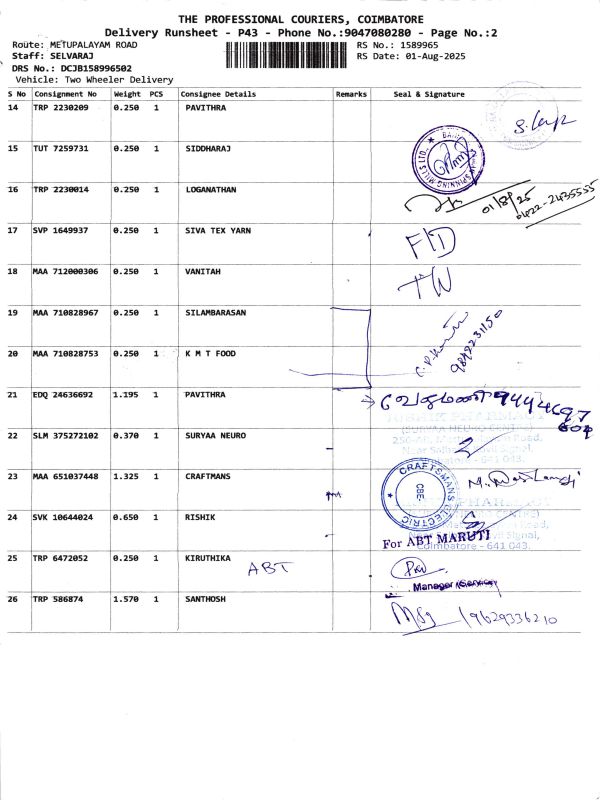 THE PROFESSIONAL COURIERS, COIMBATORE
Delivery Runsheet - P43 - Phone No.:9047080280 - Page No.:2
Route: METUPALAYAM ROAD RS No.: 1589965
Staff: SELVARAJ RS Date: 01-Aug-2025
DRS No.: DCJB158996502
Vehicle: Two Wheeler Delivery
S No Consignment No Weight PCS Consignee Details Remarks Seal & Signature
14 TRP 2230209 0.250 1 PAVITHRA
15 TUT 7259731 0.250 1 SIDDHARAJ
16 TRP 2230014 0.250 1 LOGANATHAN 01/8/25
0422-2435555
17 SVP 1649937 0.250 1 SIVA TEX YARN
18 MAA 712000306 0.250 1 VANITAH
19 MAA 710828967 0.250 1 SILAMBARASAN
20 MAA 710828753 0.250 1 K M T FOOD
21 EDQ 24636692 1.195 1 PAVITHRA
22 SLM 375272102 0.370 1 SURYAA NEURO
23 MAA 651037448 1.325 1 CRAFTMANS CRAFTSMANS ELECTRIC CBE
24 SVK 10644024 0.650 1 RISHIK
For ABT MARUTI
Coimbatore - 641 043.
25 TRP 6472052 0.250 1 KIRUTHIKA ABT
Manager (Service)
26 TRP 586874 1.570 1 SANTHOSH 9629336210